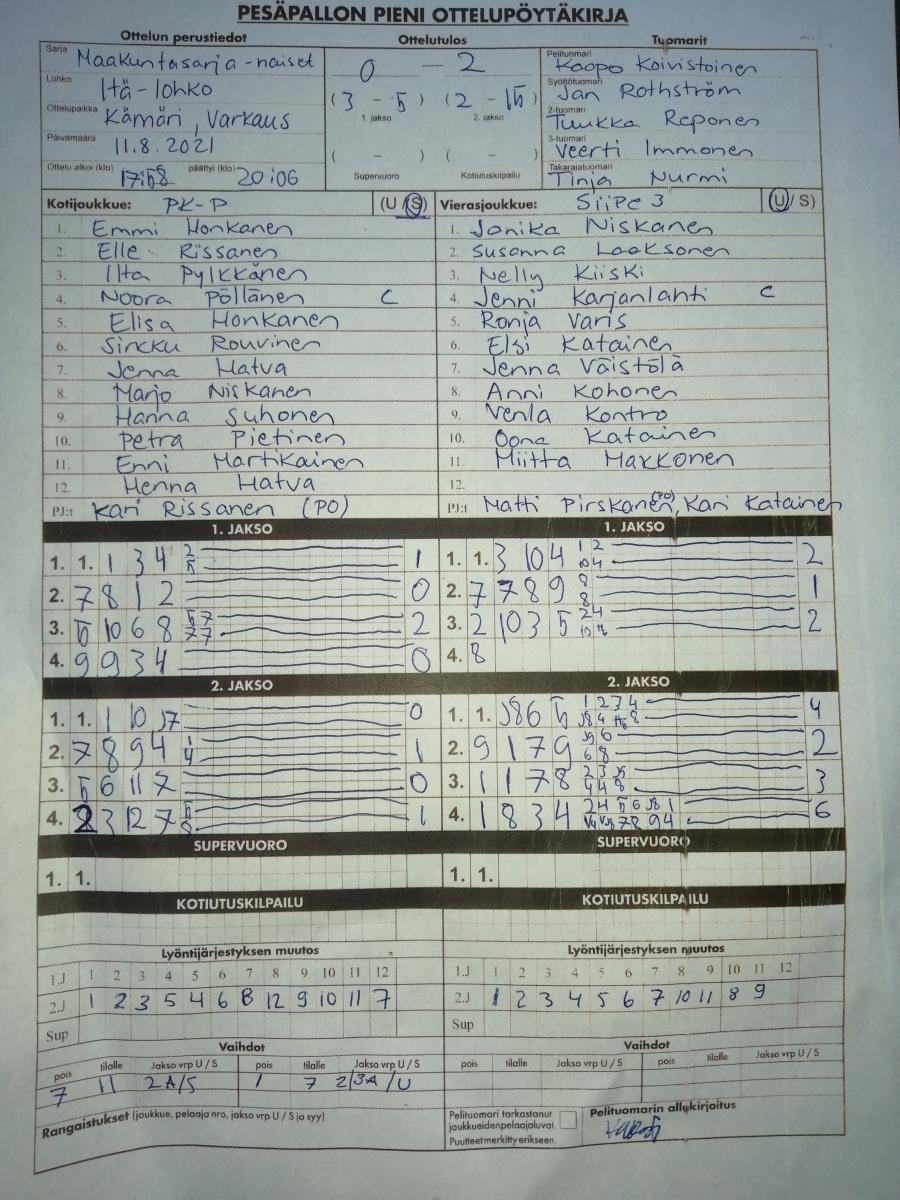 PESÄPALLON PIENI OTTELUPÖYTÄKIRJA
Ottelun perustiedot
Sarja Maakuntasarja -naiset
Lohko Itä-lohko
Ottelupaikka Kämäri, Varkaus
Päivämäärä 11.8.2021
Ottelu alkoi (klo) 17:58 päättyi (klo) 20:06
Ottelutulos
0 - 2
(3 - 5) (2 - 15)
1. jakso 2. jakso
( - ) ( - )
Supervuoro Kotiutuskilpailu
Tuomarit
Pelituomari Kaapo Koivistoinen
Syöttötuomari Jan Rothström
2-tuomari Tuukka Reponen
3-tuomari Veerti Immonen
Takarajatuomari Tinja Nurmi
Kotijoukkue: PK-P (U/S)
1. Emmi Honkanen
2. Elle Rissanen
3. Ilta Pylkkänen
4. Noora Pöllänen C
5. Elisa Honkanen
6. Sirkku Rouvinen
7. Jenna Hatva
8. Marjo Niskanen
9. Hanna Suhonen
10. Petra Pietinen
11. Enni Martikainen
12. Henna Hatva
PJ:t Kari Rissanen (PO)
Vierasjoukkue: SiiPe 3 (U/S)
1. Janika Niskanen
2. Susanna Laaksonen
3. Nelly Kiiski
4. Jenni Karjanlahti C
5. Ronja Varis
6. Elsi Katainen
7. Jenna Väistölä
8. Anni Kohonen
9. Venla Kontro
10. Oona Katainen
11. Miitta Makkonen
12.
PJ:t Matti Pirskanen (PO), Kari Katainen
1. JAKSO
1. 1. 1 3 4 2 5 1
2. 7 8 1 2 0
3. 5 10 6 8 5 7 7 7 2
4. 9 9 3 4 0
1. JAKSO
1. 1. 3 10 4 1 2 10 4 2
2. 7 7 8 9 8 8 1
3. 2 10 3 5 2 4 2
4. 8
2. JAKSO
1. 1. 1 10 0
2. 7 8 9 4 1 4 1
3. 5 6 11 7 0
4. 2 3 12 7 5 8 1
2. JAKSO
1. 1. 6 5 1 2 3 4 4
2. 9 1 7 9 6 6 8 2
3. 1 1 7 8 2 3 4 4 8 3
4. 1 8 3 4 2 4 5 6 1 7 8 9 4 6
SUPERVUORO
1. 1.
SUPERVUORO
1. 1.
KOTIUTUSKILPAILU
KOTIUTUSKILPAILU
Lyöntijärjestyksen muutos
1.J 1 2 3 4 5 6 7 8 9 10 11 12
2.J 1 2 3 5 4 6 8 12 9 10 11 7
Sup
Lyöntijärjestyksen muutos
1.J 1 2 3 4 5 6 7 8 9 10 11 12
2.J 1 2 3 4 5 6 7 10 11 8 9
Sup
Vaihdot
pois tilalle Jakso vrp U / S pois tilalle Jakso vrp U / S
7 11 2A/S 1 7 2/3A/U
Vaihdot
pois tilalle Jakso vrp U / S pois tilalle Jakso vrp U / S
Rangaistukset (joukkue, pelaaja nro, jakso vrp U / S ja syy)
Pelituomari tarkastanut
joukkueidenpelaajaluvat.
Puutteet merkitty erikseen.
Pelituomarin allekirjoitus